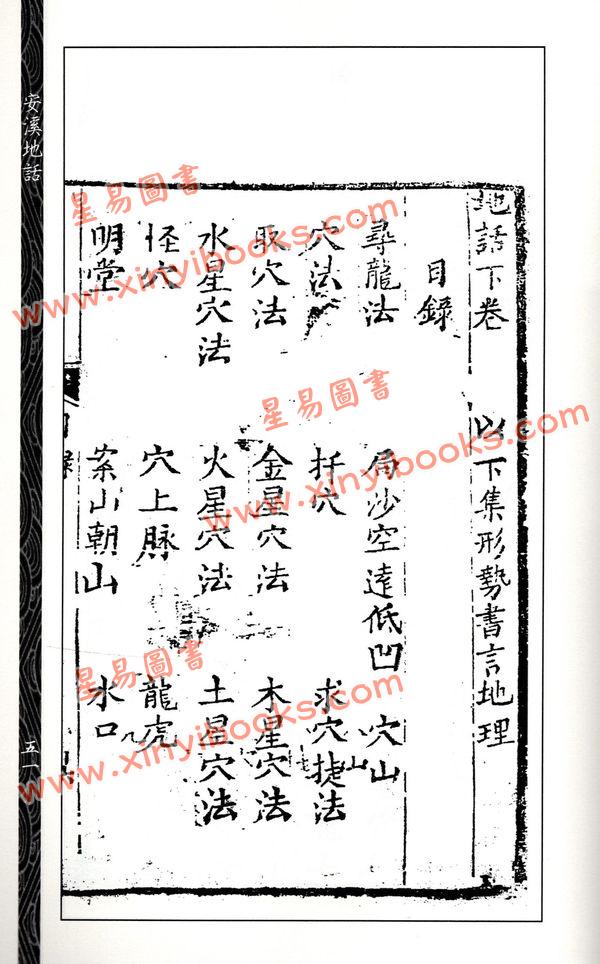 安溪地話
五一
地話下卷 以下集形勢書言地理
目錄
尋龍法 局沙空遠低凹 穴山
穴法 扦穴 求穴捷法
取穴法 金星穴法 木星穴法
水星穴法 火星穴法 土星穴法
怪穴 穴上脉 龍虎
明堂 案山朝山 水口
目錄
星易圖書
www.xinyibooks.com
星易圖書
www.xinyibooks.com
星易圖書
www.xinyibooks.com